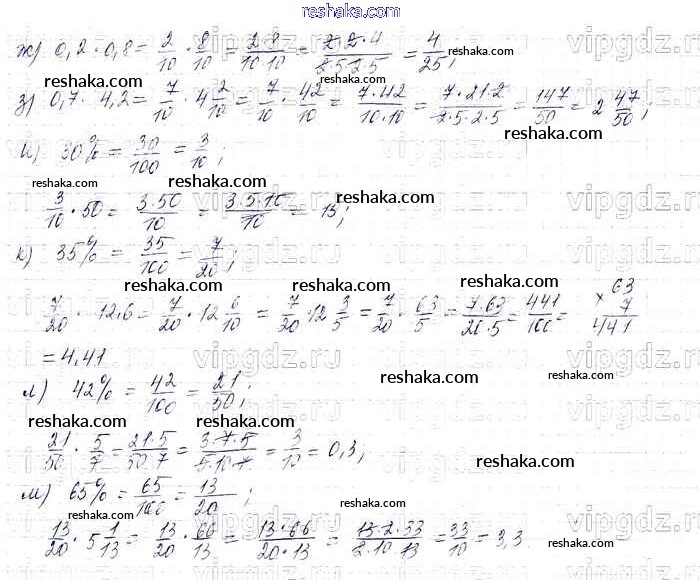 reshaka.com
ж) 0,2 · 0,8 = 2/10 · 8/10 = 2·8/10·10 = 2·2·4/2·5·2·5 = 4/25;
reshaka.com reshaka.com
з) 0,7 · 4,2 = 7/10 · 4 2/10 = 7/10 · 42/10 = 7·42/10·10 = 7·21·2/2·5·2·5 = 147/50 = 2 47/50;
reshaka.com
и) 30% = 30/100 = 3/10;
reshaka.com reshaka.com reshaka.com
3/10 · 50 = 3·50/10 = 3·5·10/10 = 15;
reshaka.com
к) 35% = 35/100 = 7/20;
reshaka.com reshaka.com
7/20 · 12,6 = 7/20 · 12 6/10 = 7/20 · 12 3/5 = 7/20 · 63/5 = 7·63/20·5 = 441/100 =
63
× 7
441
reshaka.com reshaka.com
= 4,41
л) 42% = 42/100 = 21/50;
reshaka.com
reshaka.com reshaka.com
21/50 · 5/7 = 21·5/50·7 = 3·7·5/5·10·7 = 3/10 = 0,3;
reshaka.com
м) 65% = 65/100 = 13/20;
reshaka.com
reshaka.com
13/20 · 5 1/13 = 13/20 · 66/13 = 13·66/20·13 = 13·2·33/2·10·13 = 33/10 = 3,3
reshaka.com
vipgdz.ru vipgdz.ru